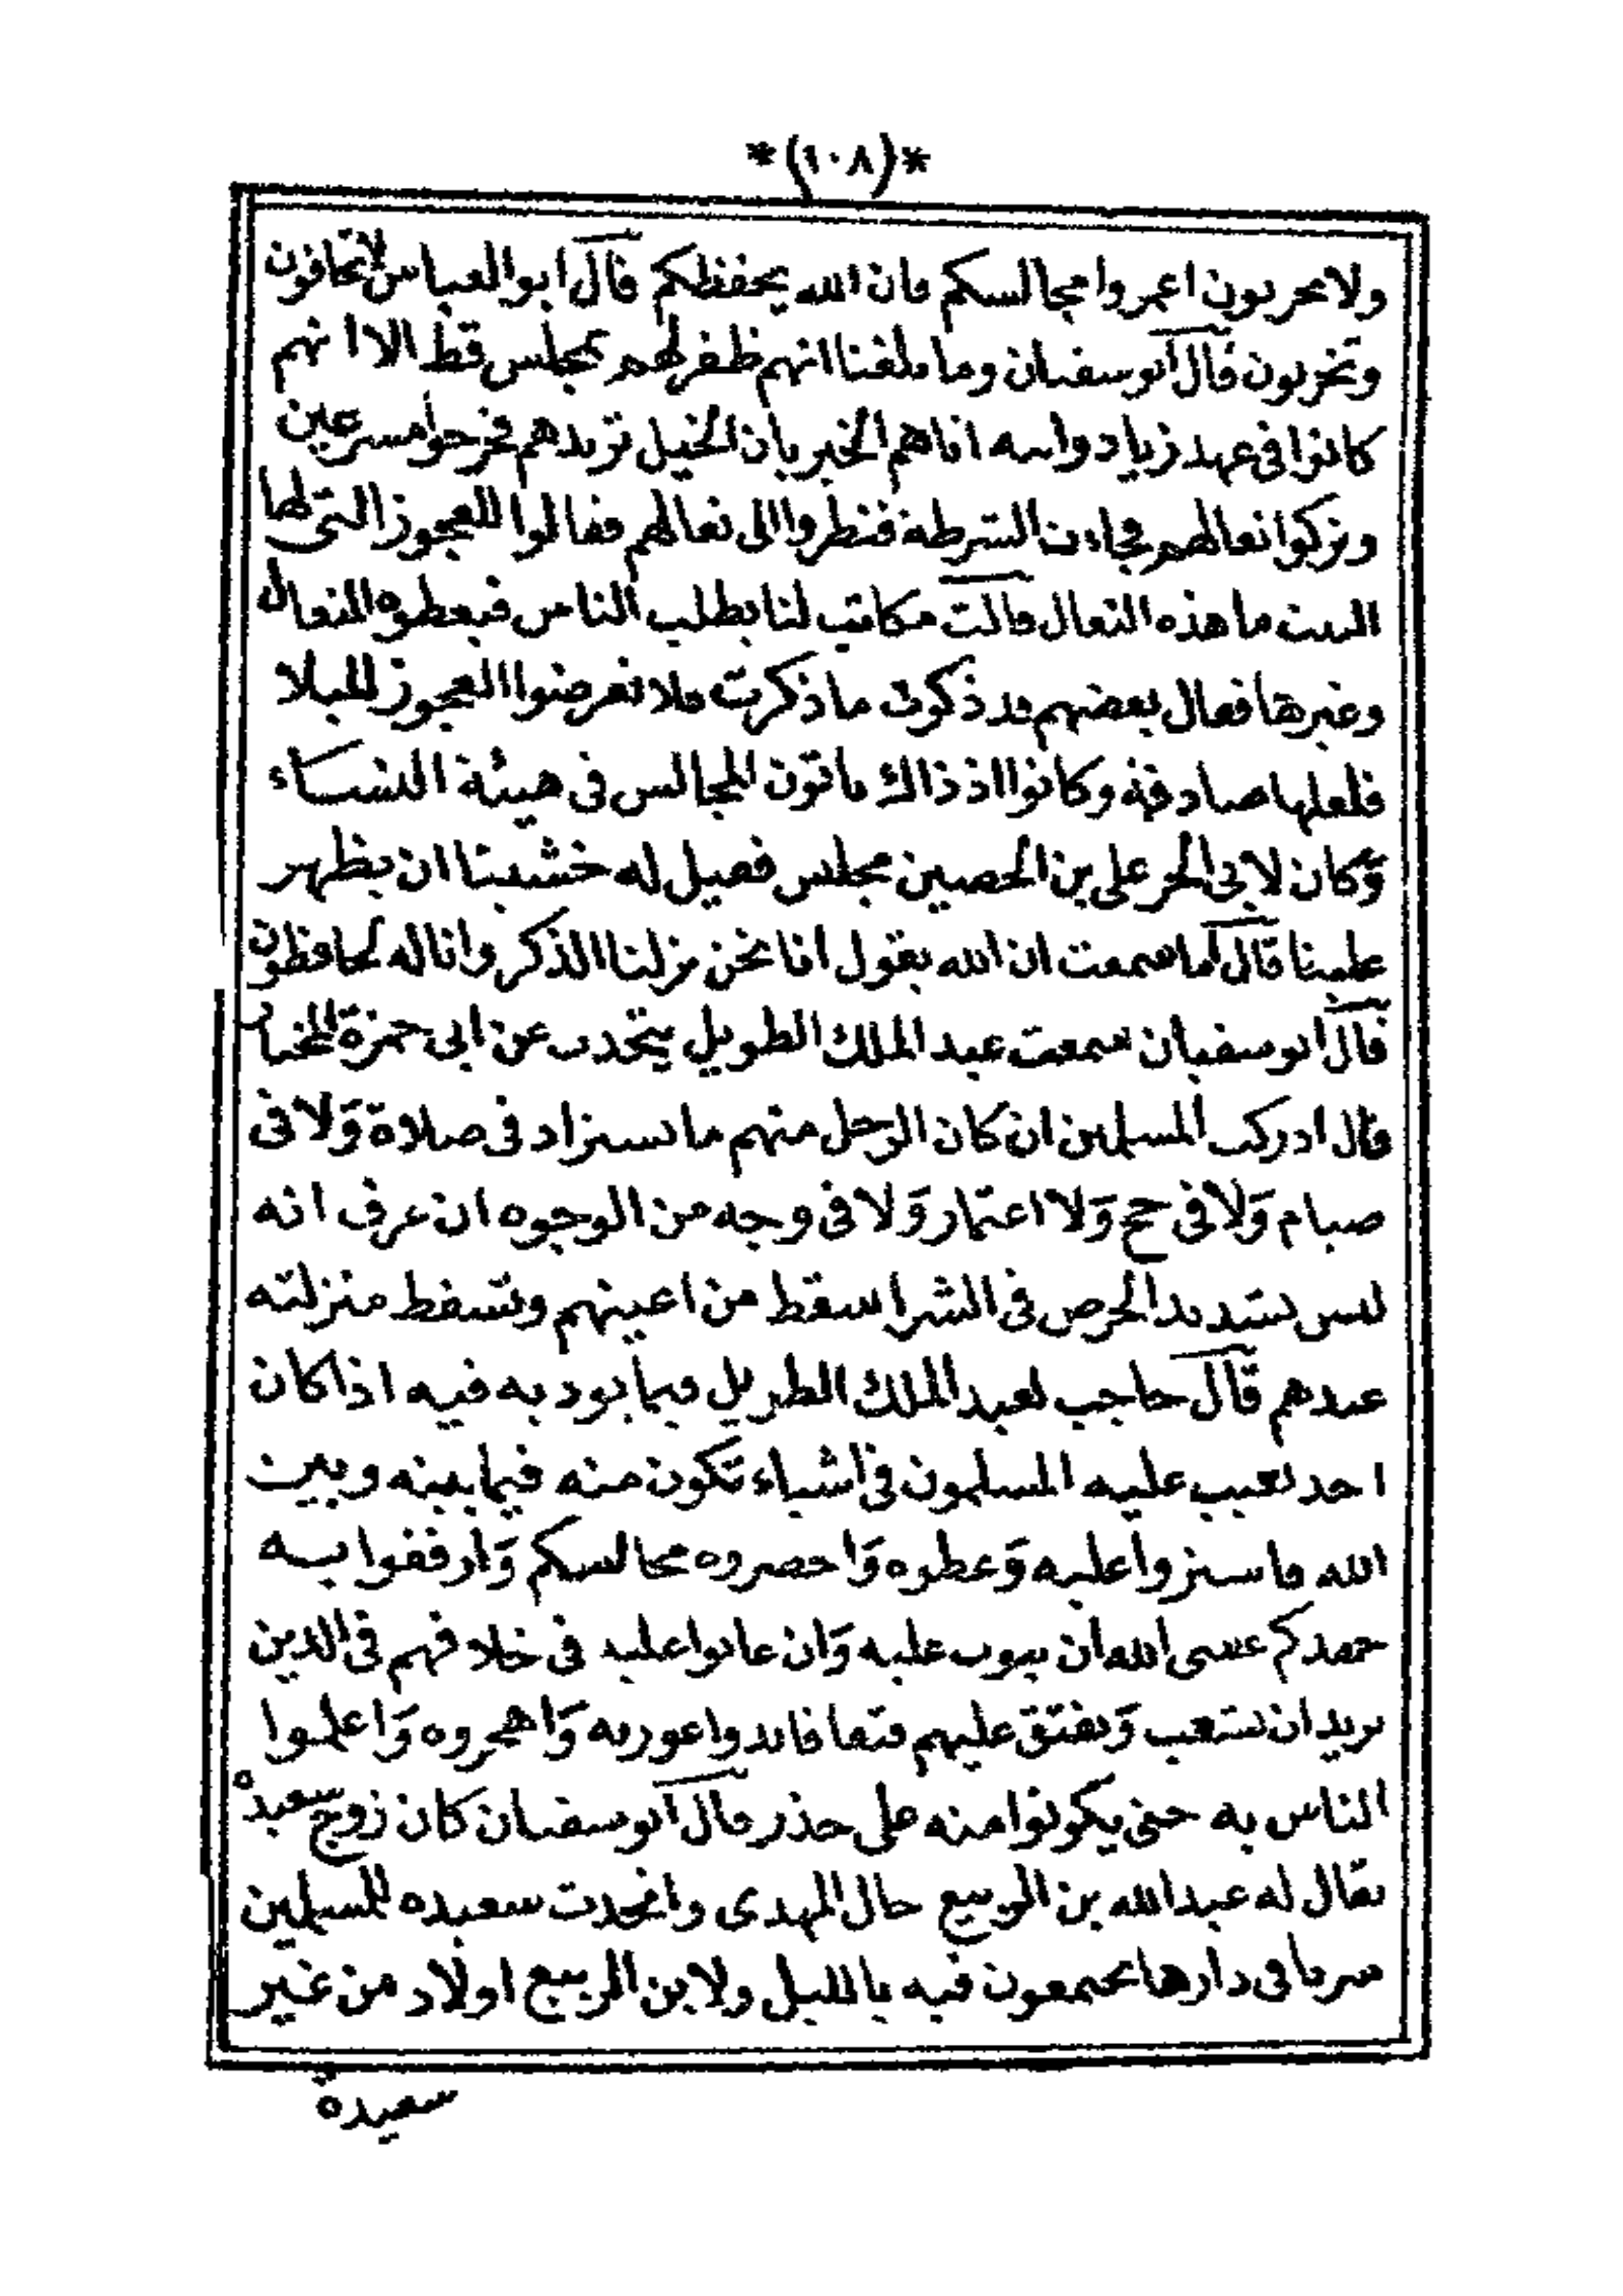 *(١٠٨)*
ولا تحربون اعمروا مجالسكم فان الله يحفظكم قال ابو العباس لا تخافون
وتخربون قال ابو سفيان وما بلغنا انهم ظفر لهم بمجلس قط الا انهم
كانوا فى عهد زياد وابنه اتاهم الخبر بان الخيل تريدهم فخرجوا مسرعين
وتركوا نعالهم فجاءت الشرطة فنظروا الى نعالهم فقالوا للعجوز التى لها
البيت ما هذه النعال قالت مكاتب لنا يطلب الناس فيعطوه النعال
وغيرها فقال بعضهم قد ذكرت ما ذكرت فلا تعرضوا العجوز للبلا
فلعلها صادقة وكانوا اذ ذاك ياتون المجالس فى هيئة النساء
وكان لابى الحر على بن الحصين مجلس فقيل له خشينا ان يظهر
علينا قال اما سمعت ان الله يقول انا نحن نزلنا الذكر وانا له لحافظون
قال ابو سفيان سمعت عبد الملك الطويل يتحدث عن ابى حمزة المختار
قال ادركت المسلمين ان كان الرجل منهم ما تستزاد فى صلاة وَلا فى
صيام وَلا فى حج وَلا اعتمار وَلا فى وجه من الوجوه ان عرف انه
ليس بشديد الحرص فى الشرا سقط من اعينهم وتسقط منزلته
عندهم قال حاجب لعبد الملك الطويل فيما يود به فيه اذا كان
احد تعيب عليه المسلمون فى اشياء تكون منه فيما بينه وبين
الله فاستزوا عليه وَعطوه وَاحضروه مجالسكم وَارفقوا به
جهدكم عسى الله ان يتوب عليه وَان عابوا عليه فى خلافهم فى الدين
يريد ان يشعب وَيفتق عليهم فتقا فابدوا عورته وَاهجروه وَاعلموا
الناس به حتى يكونوا منه على حذر قال ابو سفيان كان زوج سعيدة
يقال له عبد الله بن الربيع خال المهدى واتخذت سعيده للمسلمين
سربا فى دارها يجتمعون فيه بالليل ولابن الربيع اولاد من غير
سعيدة